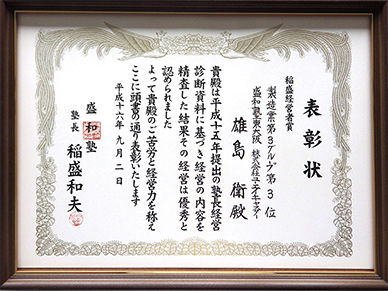 表彰状
稲盛経営者賞
製造業第3グループ 第3位
盛和塾東大阪 株式会社ユーテイキャスティ
雄島 衛殿
貴殿は平成十五年提出の塾長経営
診断資料に基づき経営の内容を
精査した結果その経営は優秀と
認められました
よって貴殿のご苦労と経営力を称え
ここに頭書の通り表彰いたします
平成十六年九月二日
盛和塾
塾長 稲盛和夫